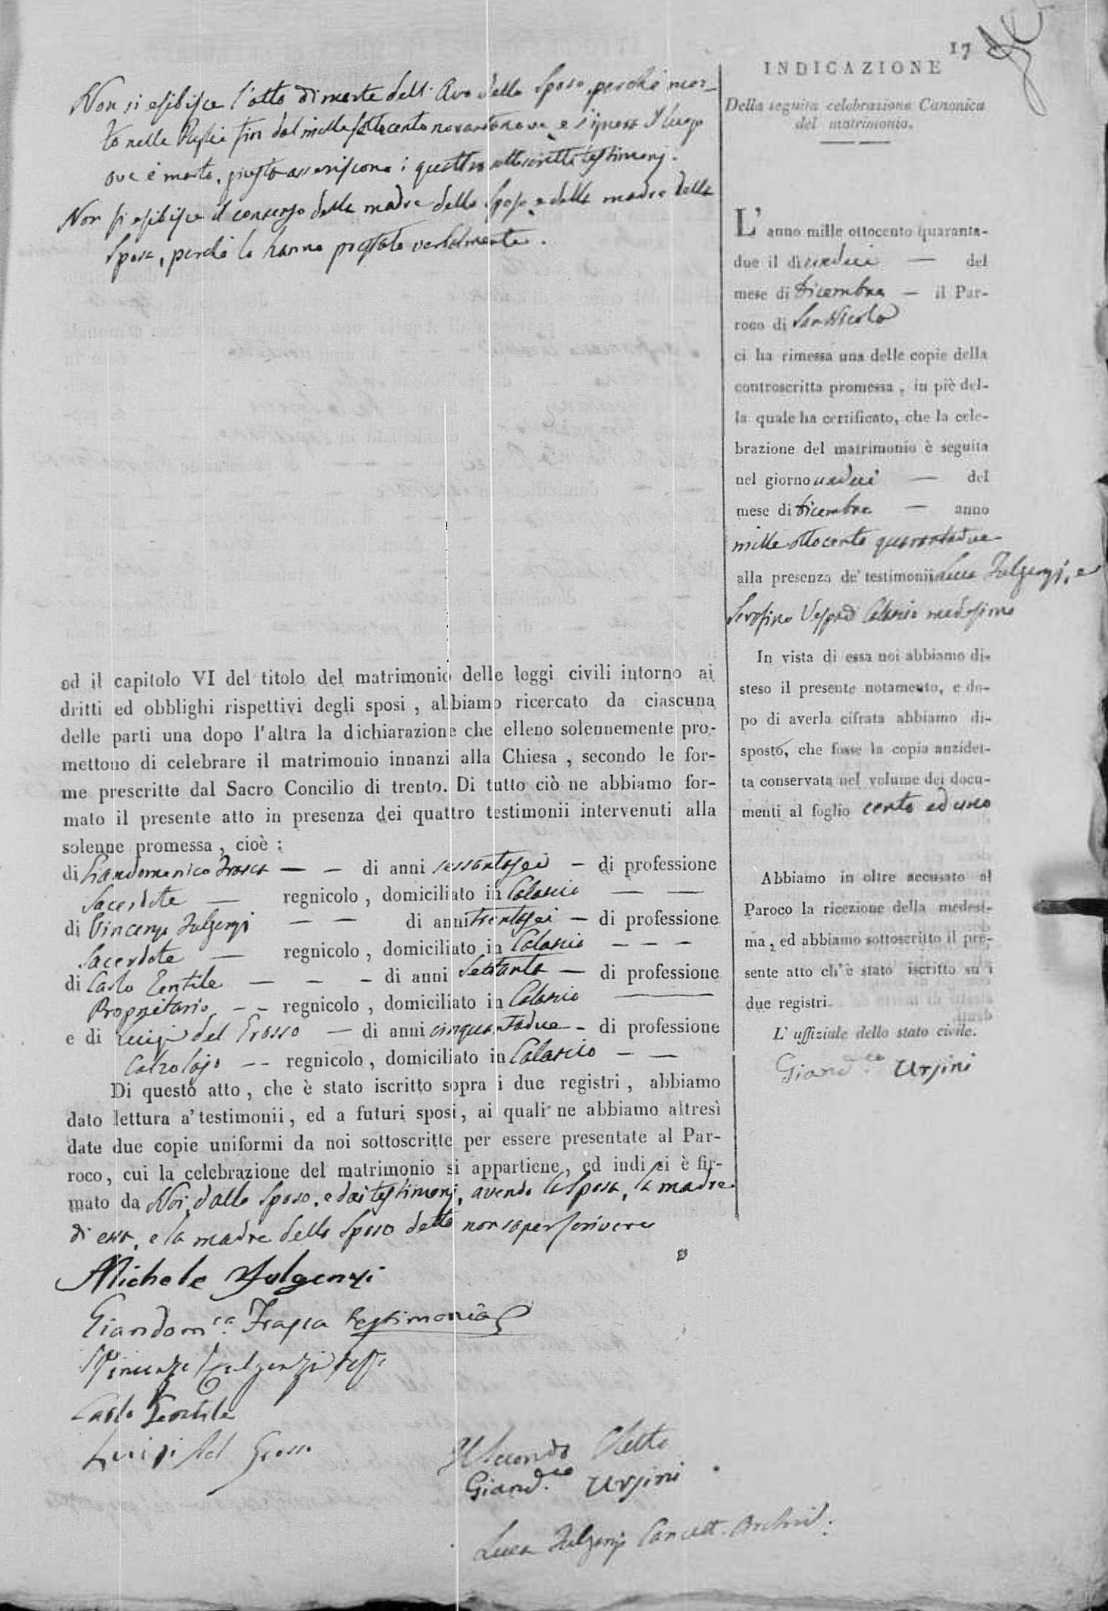 17
Non si esibisce l'atto di morte dell'Avo dello Sposo, perchè mor-
to nelle Puglie fin dal mille settecento novantanove, e s'ignora il luogo
ove è morto, giusto asseriscono i quattro sottoscritti testimonj.
Non si esibisce il consenso della madre dello Sposo, e della madre della
Sposa, perchè lo hanno prestato verbalmente.
ed il capitolo VI del titolo del matrimonio delle leggi civili intorno ai
dritti ed obblighi rispettivi degli sposi, abbiamo ricercato da ciascuna
delle parti una dopo l'altra la dichiarazione che elleno solennemente pro-
mettono di celebrare il matrimonio innanzi alla Chiesa, secondo le for-
me prescritte dal Sacro Concilio di trento. Di tutto ciò ne abbiamo for-
mato il presente atto in presenza dei quattro testimonii intervenuti alla
solenne promessa, cioè:
di Giandomenico Frasca — — di anni sessantasei — di professione
Sacerdote — regnicolo, domiciliato in Calascio — —
di Vincenzo Fulgenzj — — di anni trentasei — di professione
Sacerdote — regnicolo, domiciliato in Calascio — — —
di Carlo Gentile — — — di anni Settanta — di professione
Proprietario — — regnicolo, domiciliato in Calascio ———
e di Luigi del Grosso — di anni cinquantadue — di professione
Calzolajo — — regnicolo, domiciliato in Calascio — —
Di questo atto, che è stato iscritto sopra i due registri, abbiamo
dato lettura a' testimonii, ed a futuri sposi, ai quali ne abbiamo altresì
date due copie uniformi da noi sottoscritte per essere presentate al Par-
roco, cui la celebrazione del matrimonio si appartiene, ed indi si è fir-
mato da Noi, dallo Sposo, e dai testimonj, avendo la Sposa, la madre
di essa, e la madre dello Sposo detto non saper scrivere
Michele Fulgenzi
Giandom.co Frasca testimonio
Vincenzo Fulgenzj test.
Carlo Gentile
Luigi del Grosso
Il Secondo Eletto
Giand.co Ursini
Luca Fulgenzj Cancell. Archiv.
INDICAZIONE
Della seguita celebrazione Canonica
del matrimonio.
L'anno mille ottocento quaranta-
due il dì undici — del
mese di Dicembre — il Par-
roco di San Nicola
ci ha rimessa una delle copie della
controscritta promessa, in piè del-
la quale ha certificato, che la cele-
brazione del matrimonio è seguita
nel giorno undici — del
mese di Dicembre — anno
mille ottocento quarantadue
alla presenza de' testimonii Luca Fulgenzj, e
Serafino Vespa di Calascio medesimo
In vista di essa noi abbiamo di-
steso il presente notamento, e do-
po di averla cifrata abbiamo di-
sposto, che fosse la copia anzidet-
ta conservata nel volume dei docu-
menti al foglio cento ed uno
Abbiamo in oltre accusato al
Paroco la ricezione della medesi-
ma, ed abbiamo sottoscritto il pre-
sente atto ch'è stato iscritto su i
due registri.
L'uffiziale dello stato civile.
Giand.co Ursini